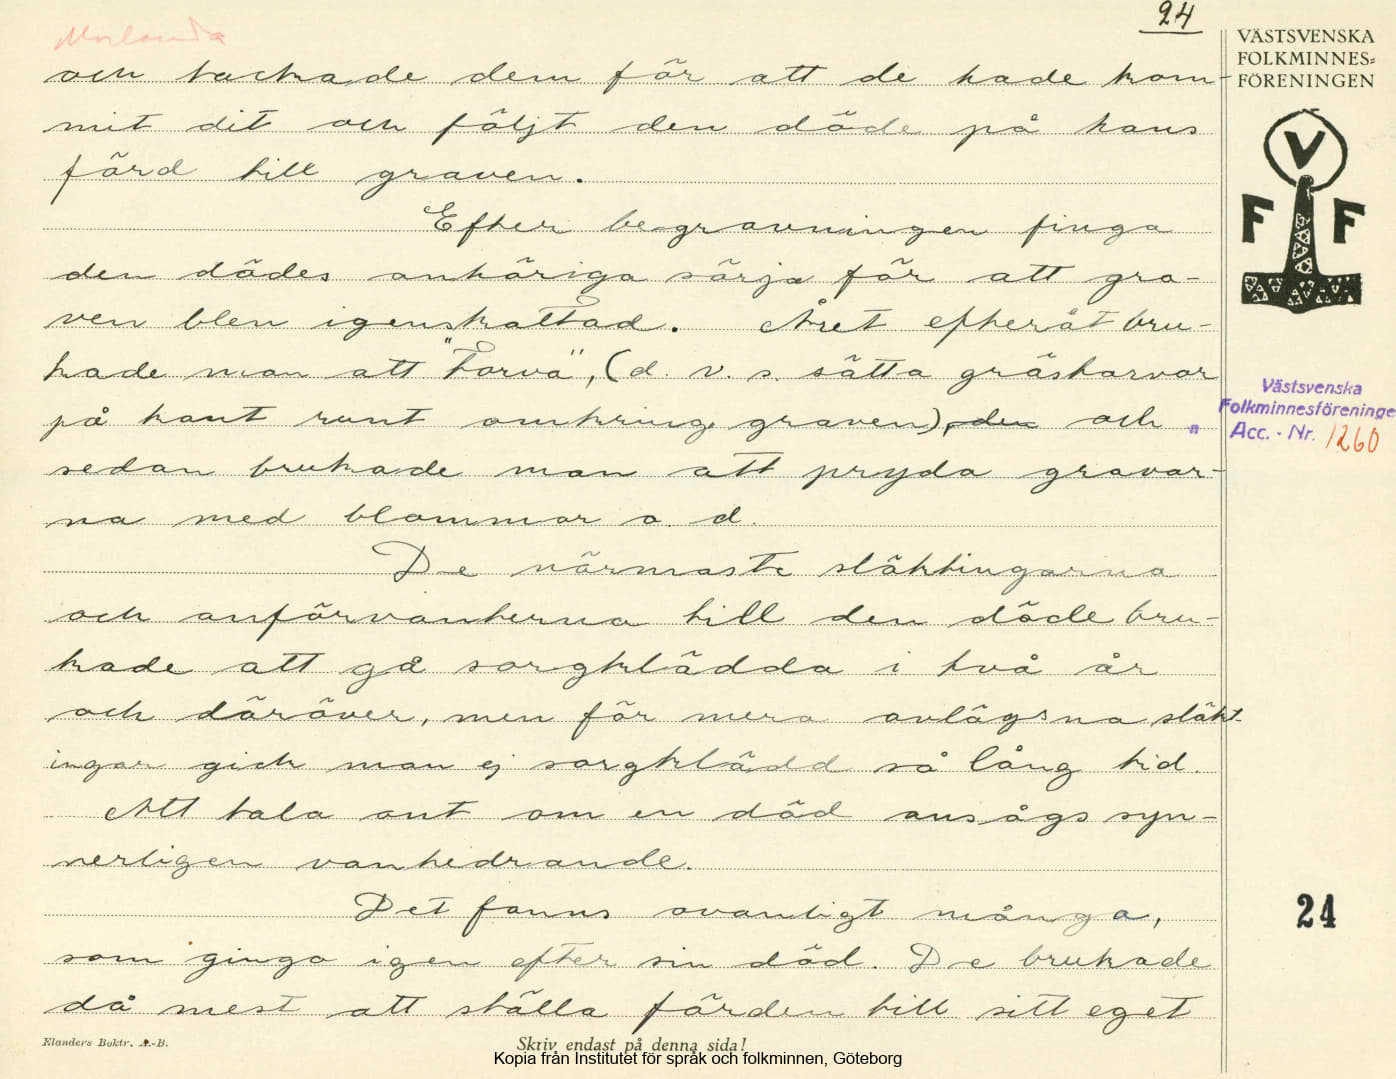 24
Morlanda
VÄSTSVENSKA
FOLKMINNES=
FÖRENINGEN
V
F F
och tackade dem för att de hade kom-
mit dit och följt den döde på hans
färd till graven.
Efter begravningen finga
den dödes anhöriga sörja för att gra-
ven blev igenskottad. Året efteråt bru-
kade man att "torva", (d. v. s. sätta grästorvor
på kant runt omkring graven), den och
sedan brukade man att pryda gravar-
na med blommor o. d.
De närmaste släktingarna
och anförvanterna till den döde bru-
kade att gå sorgklädda i två år
och däröver, men för mera avlägsna släkt-
ingar gick man ej sorgklädd så lång tid.
Att tala ont om en död ansågs syn-
nerligen vanhedrande.
Det fanns ovanligt många,
som gingo igen efter sin död. De brukade
då mest att ställa färden till sitt eget
Västsvenska
Folkminnesföreninge
Acc. - Nr. 1260
24
Elanders Boktr. A.-B.
Skriv endast på denna sida!
Kopia från Institutet för språk och folkminnen, Göteborg